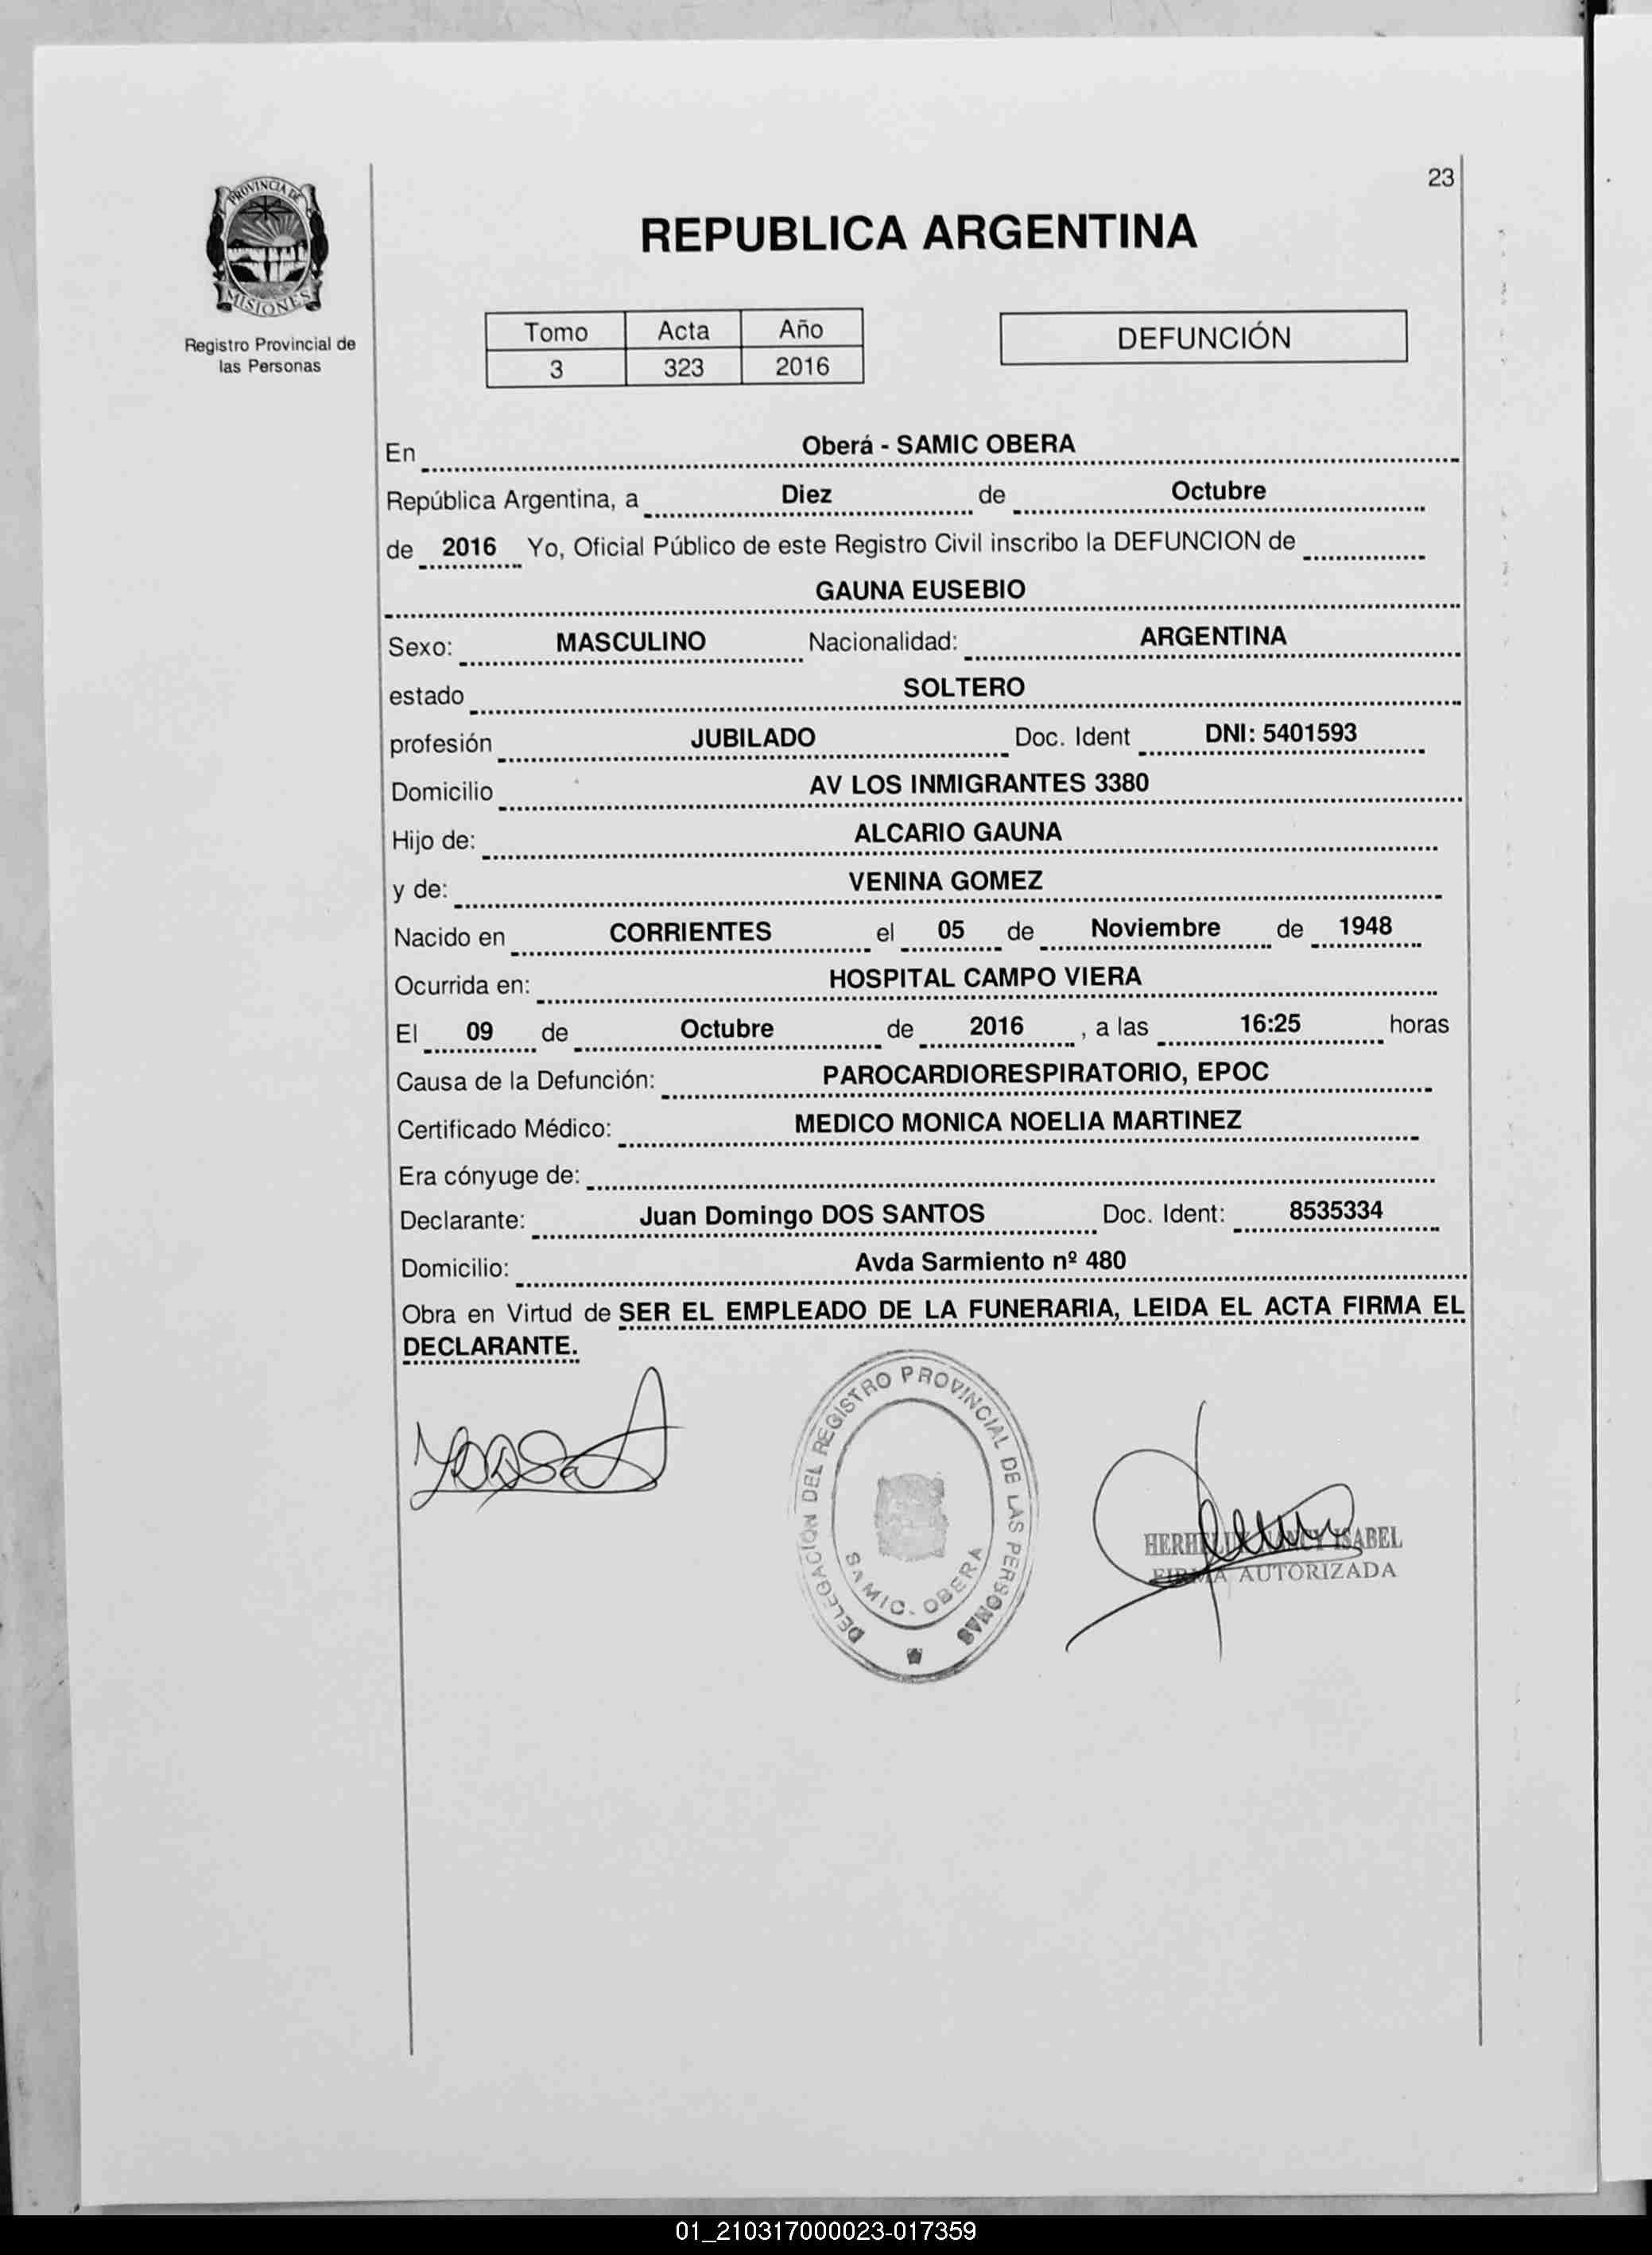 23
PROVINCIA DE
MISIONES
Registro Provincial de
las Personas
REPUBLICA ARGENTINA
Tomo Acta Año
3 323 2016
DEFUNCIÓN
En Oberá - SAMIC OBERA
República Argentina, a Diez de Octubre
de 2016 Yo, Oficial Público de este Registro Civil inscribo la DEFUNCION de
GAUNA EUSEBIO
Sexo: MASCULINO Nacionalidad: ARGENTINA
estado SOLTERO
profesión JUBILADO Doc. Ident DNI: 5401593
Domicilio AV LOS INMIGRANTES 3380
Hijo de: ALCARIO GAUNA
y de: VENINA GOMEZ
Nacido en CORRIENTES el 05 de Noviembre de 1948
Ocurrida en: HOSPITAL CAMPO VIERA
El 09 de Octubre de 2016 , a las 16:25 horas
Causa de la Defunción: PAROCARDIORESPIRATORIO, EPOC
Certificado Médico: MEDICO MONICA NOELIA MARTINEZ
Era cónyuge de:
Declarante: Juan Domingo DOS SANTOS Doc. Ident: 8535334
Domicilio: Avda Sarmiento nº 480
Obra en Virtud de SER EL EMPLEADO DE LA FUNERARIA, LEIDA EL ACTA FIRMA EL
DECLARANTE.
DELEGACION DEL REGISTRO PROVINCIAL DE LAS PERSONAS
SAMIC. OBERA
ISABEL
FIRMA AUTORIZADA
01_210317000023-017359